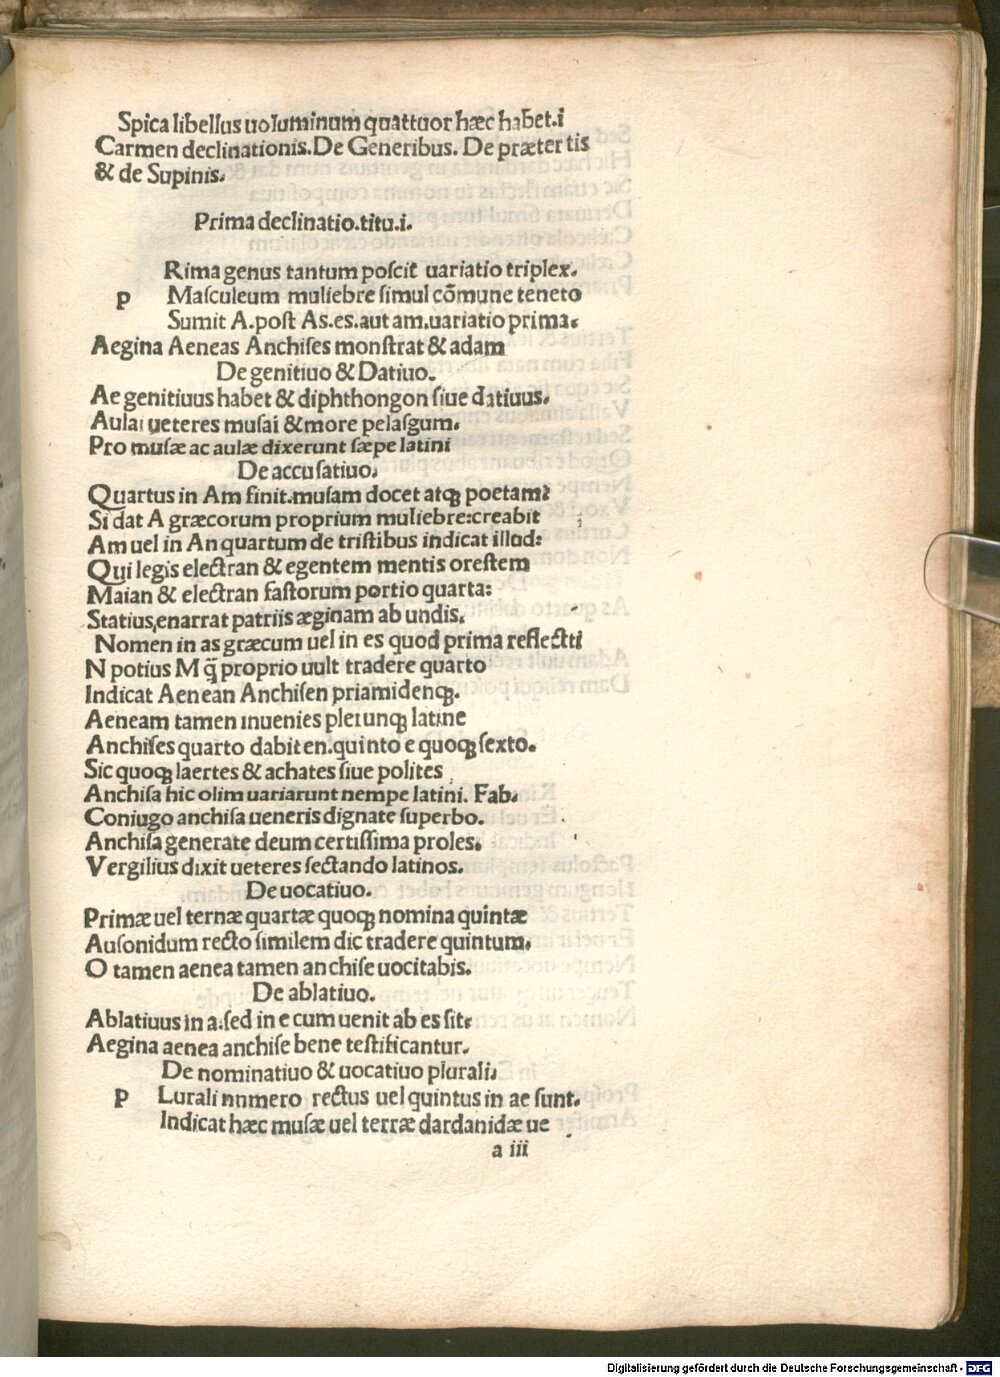 Spica libellus uoluminum quattuor hæc habet.i
Carmen declinationis.De Generibus. De præteritis
& de Supinis.
Prima declinatio.titu.i.
Rima genus tantum poſcit uariatio triplex.
p Maſculeum muliebre ſimul cõmune teneto
Sumit A.poſt As.es.aut am.uariatio prima.
Aegina Aeneas Anchiſes monſtrat & adam
De genitiuo & Datiuo.
Ae genitiuus habet & diphthongon ſiue datiuus.
Aulai ueteres muſai &more pelaſgum.
Pro muſæ ac aulæ dixerunt ſæpe latini
De accuſatiuo.
Quartus in Am finit.muſam docet atq̷ poetam:
Si dat A græcorum proprium muliebre:creabit
Am uel in An quartum de triſtibus indicat illud:
Qui legis electran & egentem mentis oreſtem
Maian & electran faſtorum portio quarta:
Statius,enarrat patriis æginam ab undis.
Nomen in as græcum uel in es quod prima reflecti
N potius M q̃ proprio uult tradere quarto
Indicat Aenean Anchiſen priamidenq̷.
Aeneam tamen inuenies plerunq̷ latine
Anchiſes quarto dabit en.quinto e quoq̷ ſexto.
Sic quoq̷ laertes & achates ſiue polites
Anchiſa hic olim uariarunt nempe latini. Fab.
Coniugo anchiſa ueneris dignate ſuperbo.
Anchiſa generate deum certiſſima proles.
Vergilius dixit ueteres ſectando latinos.
De uocatiuo.
Primæ uel ternæ quartæ quoq̷ nomina quintæ
Auſonidum recto ſimilem dic tradere quintum.
O tamen aenea tamen anchiſe uocitabis.
De ablatiuo.
Ablatiuus in a:ſed in e cum uenit ab es ſit.
Aegina aenea anchiſe bene teſtificantur.
De nominatiuo & uocatiuo plurali.
P Lurali nnmero rectus uel quintus in ae ſunt.
Indicat hæc muſæ uel terræ dardanidæ ue
a iii
Digitalisierung gefördert durch die Deutsche Forschungsgemeinschaft - DFG